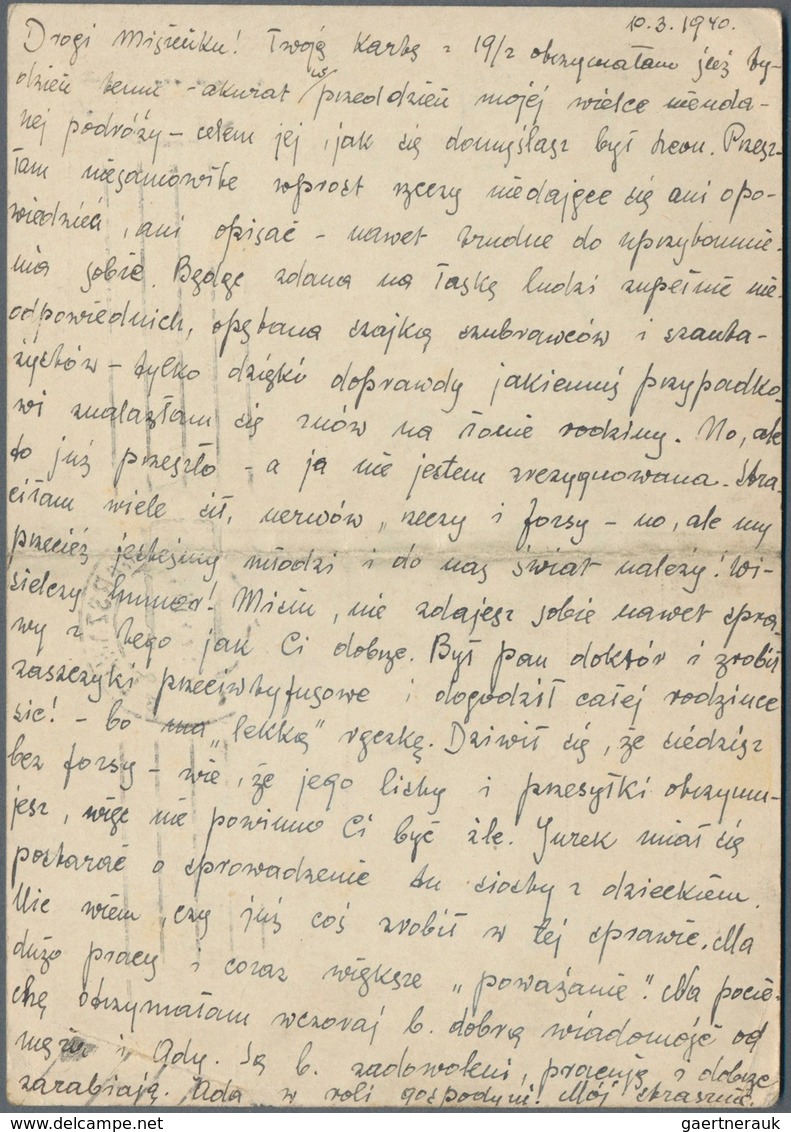 10.3.1940.
Drogi Misieńku! Twoją kartę z 19/2 otrzymałam już ty-
dzień temu - akurat w przeddzień mojej wielce nieuda-
nej podróży - celem jej, jak się domyślasz był Lwow. Przesz-
łam niesamowite wprost rzeczy niedające się ani opo-
wiedzieć, ani opisać - nawet trudne do uprzytomnie-
nia sobie. Będąc zdana na łaskę ludzi zupełnie nie-
odpowiednich, opętana szajką szubrawców i szanta-
żystów - tylko dzięki doprawdy jakiemuś przypadko-
wi znalazłam się znów na łonie rodziny. No, ale
to już przeszło - a ja nie jestem zrezygnowana. Stra-
ciłam wiele sił, nerwów, rzeczy i forsy - no, ale my
przecież jesteśmy młodzi i do nas świat należy! Wi-
sielczy humor! Misiu, nie zdajesz sobie nawet spra-
wy z tego jak Ci dobrze. Był pan doktór i zrobił
zaszczyki przeciwtyfusowe i dogodził całej rodzince
sic! - bo ma "lekką" rączkę. Dziwił się, że siedzisz
bez forsy - wie, że jego listy i przesyłki otrzymu-
jesz, więc nie powinno Ci być źle. Jurek miał się
postarać o sprowadzenie tu siostry z dzieckiem.
Nie wiem, czy już coś zrobił w tej sprawie. Ma
dużo pracy i coraz większe "poważanie". Na pocie-
chę otrzymałam wczoraj b. dobrą wiadomość od
i Ady. Są b. zadowoleni, pracują i dobrze
zarabiają. Ada w roli gospodyni! Mój strasznie
gaertnerauk / Delcampe.net